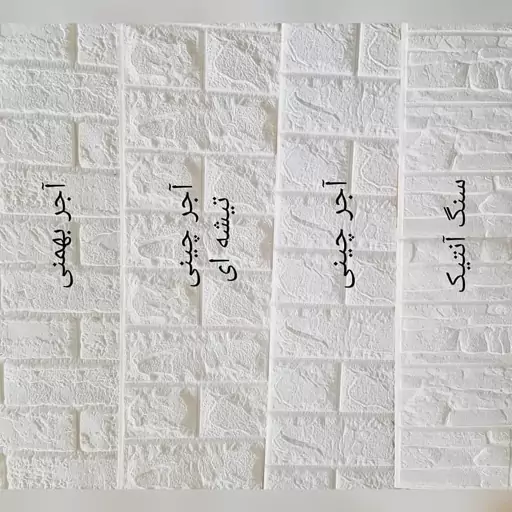 آجر بهمنی
آجر چینی
تیشه ای
آجر چینی
سنگ آنتیک